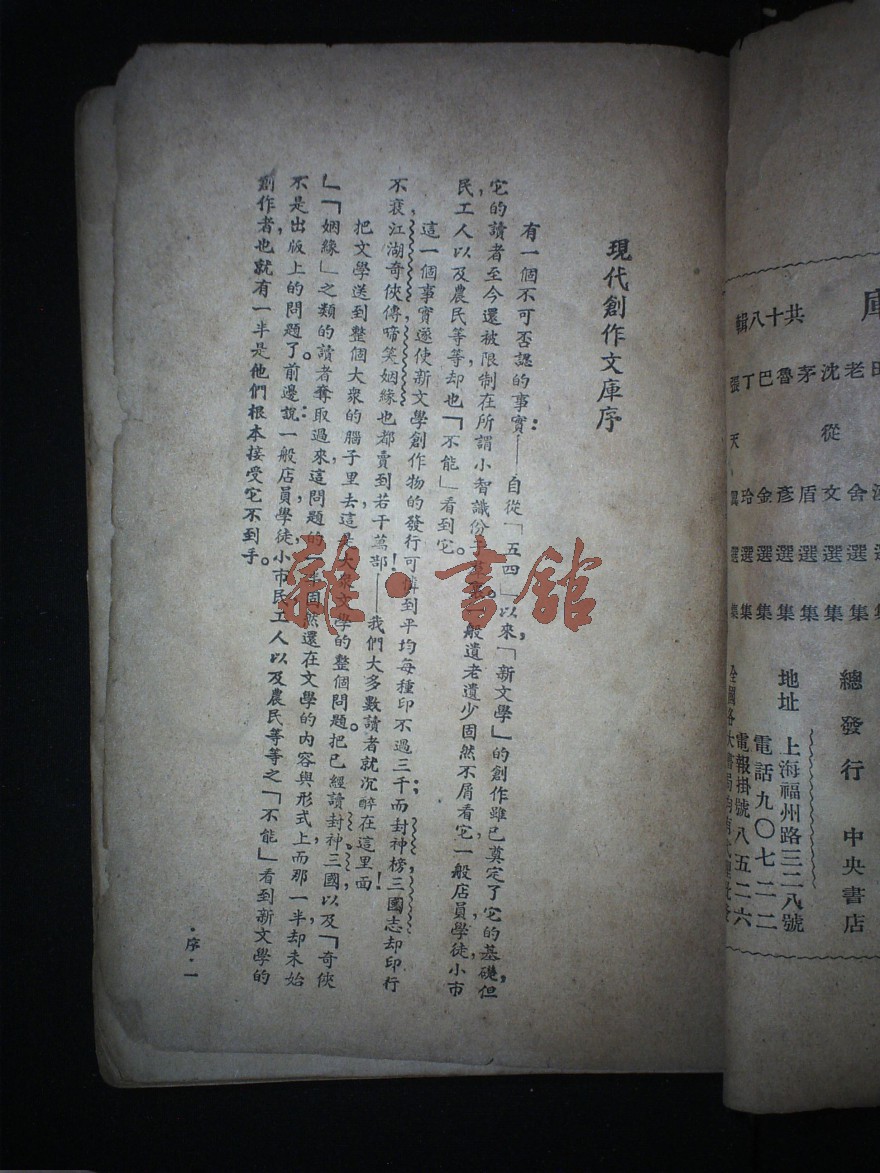 庫
共十八輯
老舍選集
沈從文選集
茅盾選集
魯彥選集
巴金選集
丁玲選集
張天翼選集
總發行 中央書店
地址 上海福州路三二八號
電話九〇七二二
電報掛號八五二六
全國各大書局均有
現代創作文庫序
有一個不可否認的事實：——自從「五四」以來，「新文學」的創作雖已奠定了它的基礎，但
它的讀者至今還被限制在所謂小智識份子，一般遺老遺少固然不屑看它，一般店員，學徒，小市
民工人以及農民等等，却也「不能」看到它。
這一個事實遂使新文學創作物的發行可憐到平均每種印不過三千；而封神榜，三國志却印行
不衰，江湖奇俠傳，啼笑姻緣也都賣到若干萬部！——我們大多數讀者就沉醉在這里面！
把文學送到整個大衆的腦子里去，這是大衆文學的整個問題。把已經讀封神。三國。以及「奇俠
」「姻緣」之類的讀者奪取過來，這問題的一半固然還在文學的內容與形式上，而那一半却未始
不是出版上的問題了。前邊說：一般店員，學徒，小市民工人以及農民等等之「不能」看到新文學的
創作者，也就有一半是他們根本接受它不到手。
·序·一
雜·書館